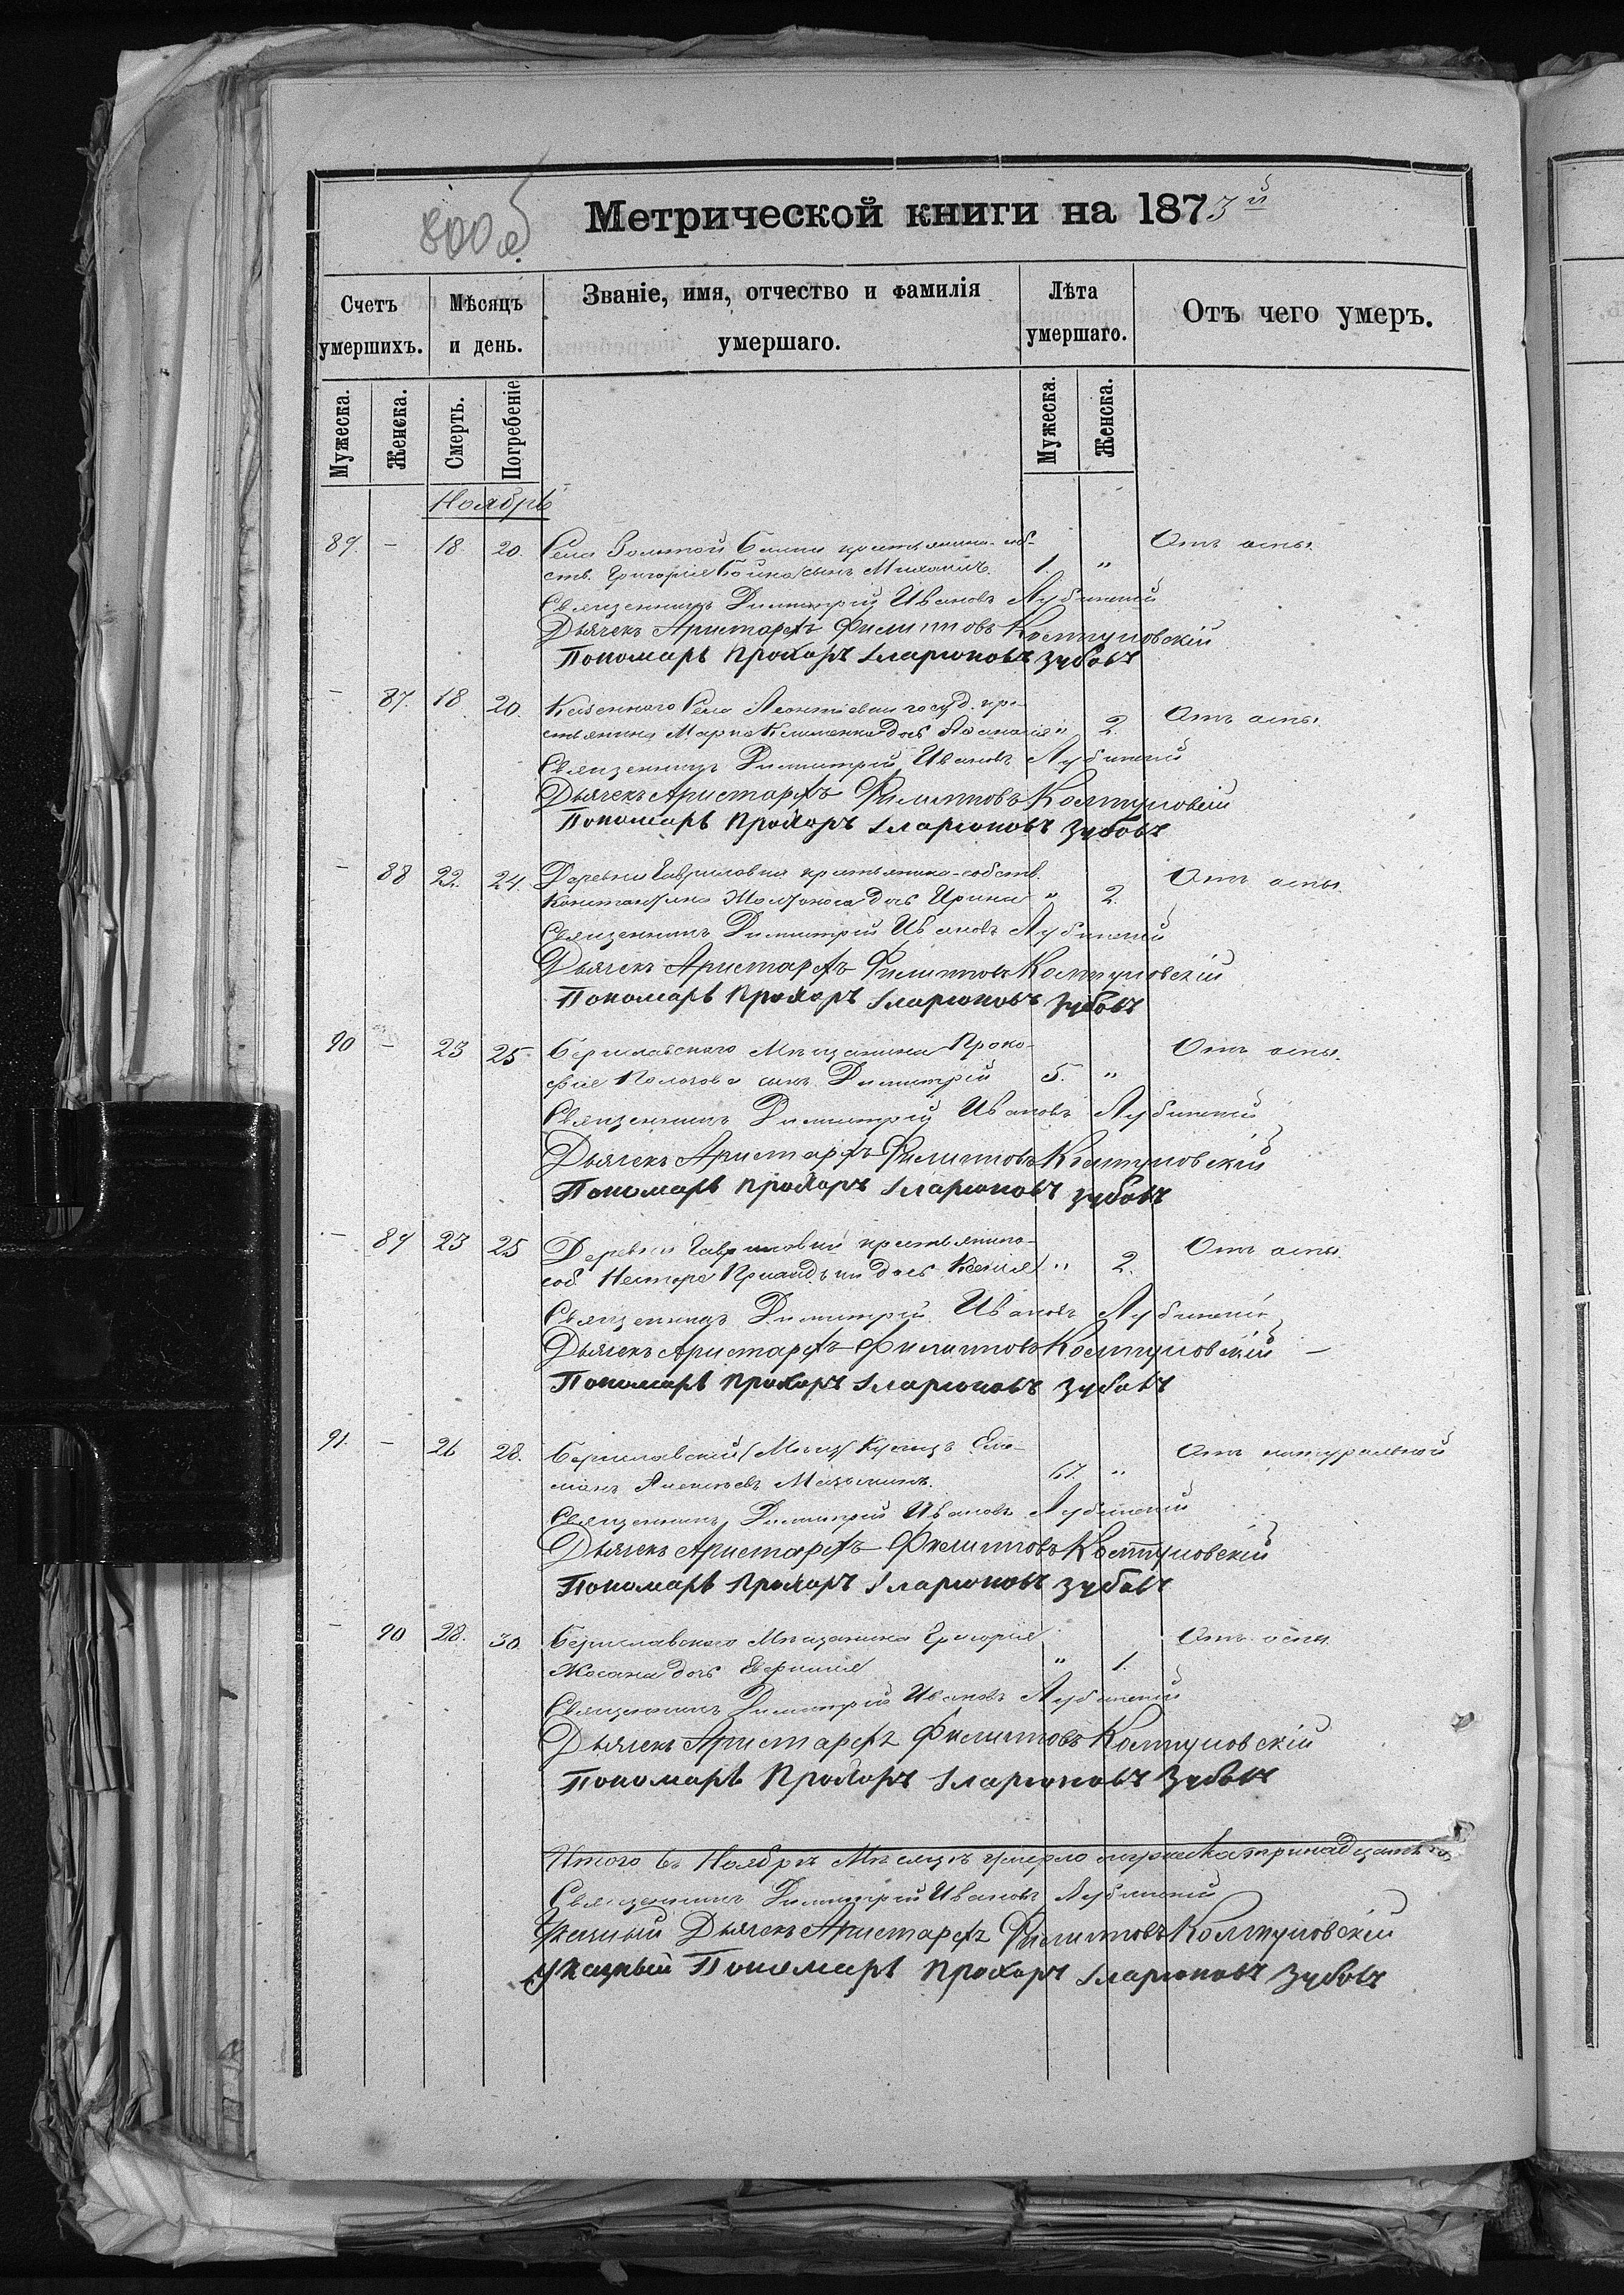 800 об
Метрической книги на 1873й
Счетъ умершихъ.
Мѣсяцъ и день.
Званіе, имя, отчество и фамилія умершаго.
Лѣта умершаго.
Отъ чего умеръ.
Мужеска. Женска. Смерть. Погребеніе. Мужеска. Женска.
Ноябрь
89. – 18 20. Села Золотой Балки крестьянина-соб- Отъ оспы.
ств. Григорія Бойка сынъ Михаилъ. 1. "
Священникъ Димитрій Ивановъ Лубинскій
Дьячекъ Аристархъ Филипповъ Колтуновскій
Пономарь Прохоръ Iларионовъ Зубовъ
– 87. 18 20. Казеннаго Села Леонтіевки госуд. кре- Отъ оспы.
стьянина Марка Клименка дочь " 2.
Священникъ Димитрій Ивановъ Лубинскій
Дьячекъ Аристархъ Филипповъ Колтуновскій
Пономарь Прохоръ Iларионовъ Зубовъ
– 88 22. 24. Деревни Гавриловки крестьянина-собств. Отъ оспы.
Константина дочь Ирина " 2.
Священникъ Димитрій Ивановъ Лубинскій
Дьячекъ Аристархъ Филипповъ Колтуновскій
Пономарь Прохоръ Iларионовъ Зубовъ
90 – 23 25. Бериславскаго Мѣщанина Проко- Отъ оспы.
фія сынъ Димитрій 5. "
Священникъ Димитрій Ивановъ Лубинскій
Дьячекъ Аристархъ Филипповъ Колтуновскій
Пономарь Прохоръ Iларионовъ Зубовъ
– 89 23 25 Деревни Гавриловки крестьянина- Отъ оспы.
соб. Нестора дочь Ксенія " 2.
Священникъ Димитрій Ивановъ Лубинскій
Дьячекъ Аристархъ Филипповъ Колтуновскій –
Пономарь Прохоръ Iларионовъ Зубовъ
91. – 26 28. Бериславскій Купецъ Отъ натуральной
67. "
Священникъ Димитрій Ивановъ Лубинскій
Дьячекъ Аристархъ Филипповъ Колтуновскій
Пономарь Прохоръ Iларионовъ Зубовъ
– 90 28. 30 Бериславскаго Мѣщанина Григорія Отъ оспы
дочь Евфимія " 1.
Священникъ Димитрій Ивановъ Лубинскій
Дьячекъ Аристархъ Филипповъ Колтуновскій
Пономарь Прохоръ Iларионовъ Зубовъ
Итого въ Ноябрѣ Мѣсяцѣ умерло мужеска тринадцать
Священникъ Димитрій Ивановъ Лубинскій
Указный Дьячекъ Аристархъ Филипповъ Колтуновскій
Указный Пономарь Прохоръ Iларионовъ Зубовъ